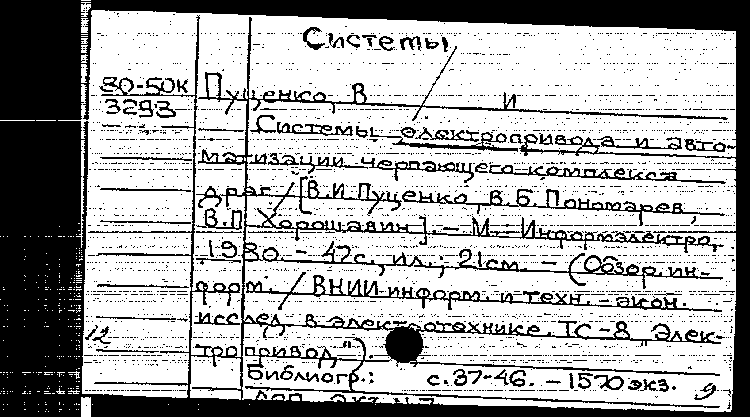 Системы
80-50К
3293
Пуценко, В И
Системы электропривода и авто-
матизации черпающего комплекса
драг / [В.И. Пуценко, В.Б. Пономарев,
В.П. Хорошавин]. - М.: Информэлектро,
1980. - 42с., ил.; 21см. - (Обзор. ин-
форм. / ВНИИ информ. и техн. - экон.
исслед. в электротехнике. ТС-8 „Элек-
тропривод").
12
Библиогр.: с. 37-46. - 1570 экз. 9